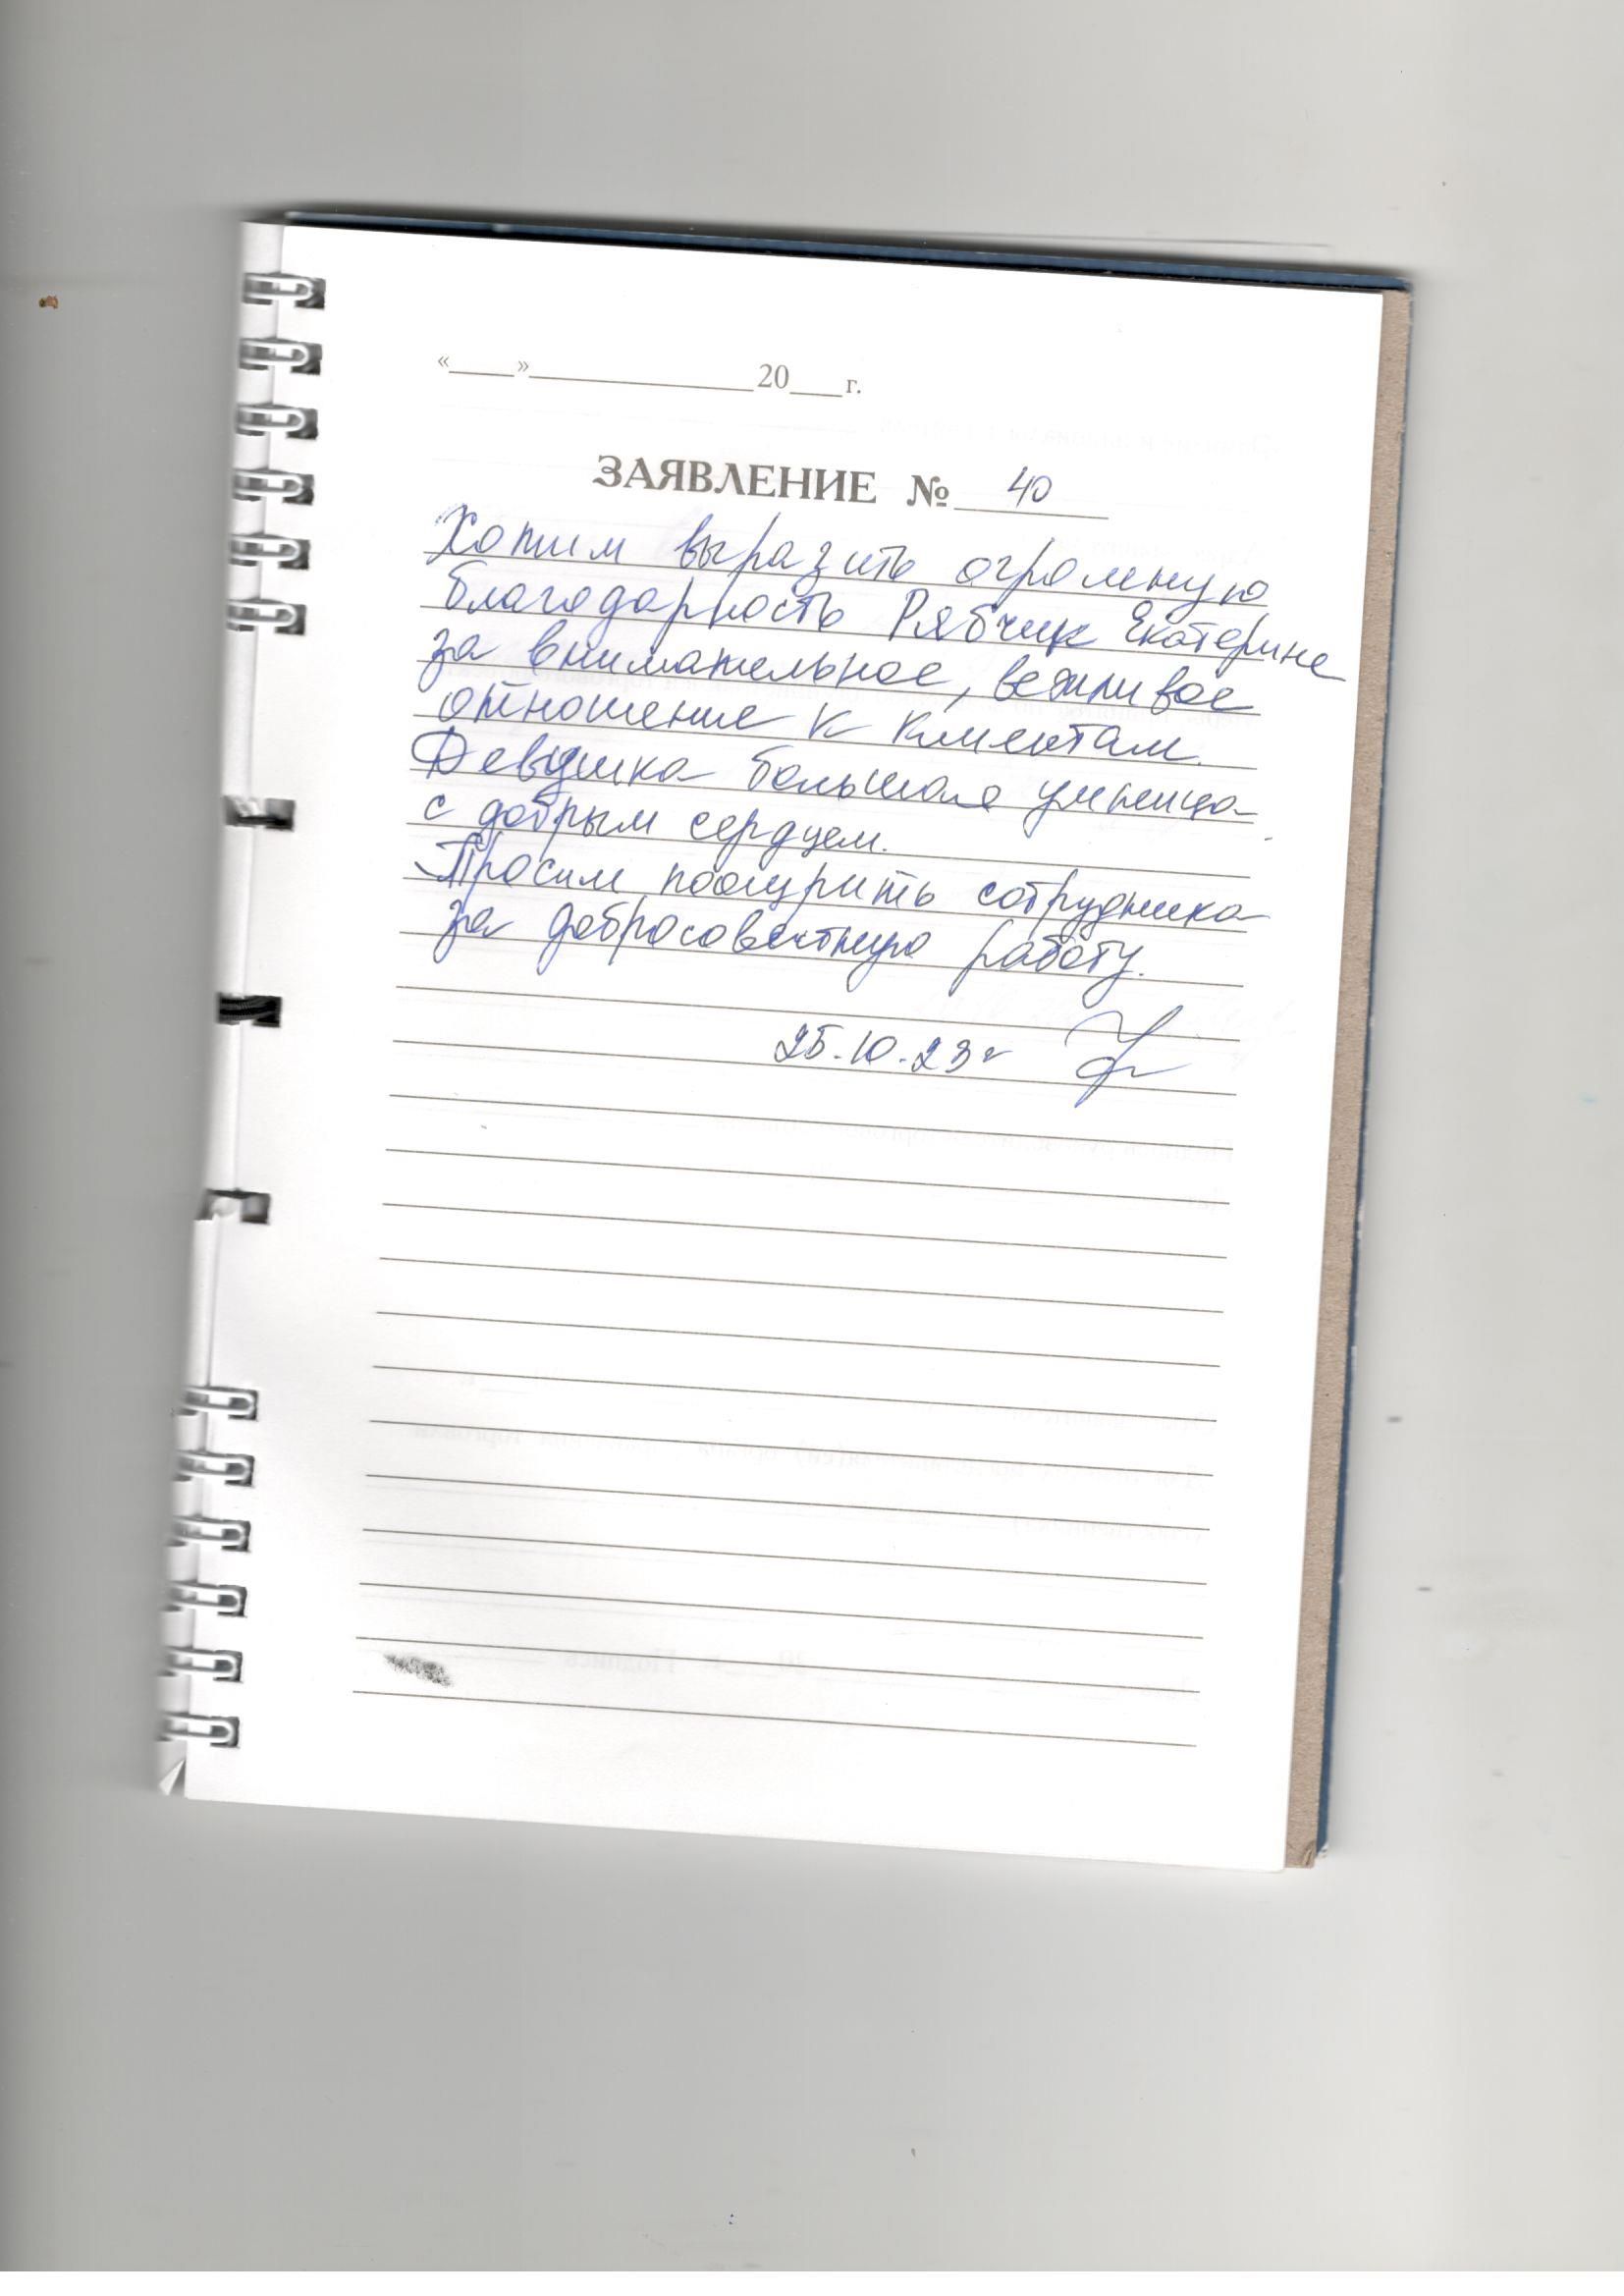 «____»______________20___г.
ЗАЯВЛЕНИЕ № 40
Хотим выразить огромную
благодарность Рябчук Екатерине
за внимательное, вежливое
отношение к клиентам.
Девушка большая умница
с добрым сердцем.
Просим поощрить сотрудника
за добросовестную работу.
25.10.23г